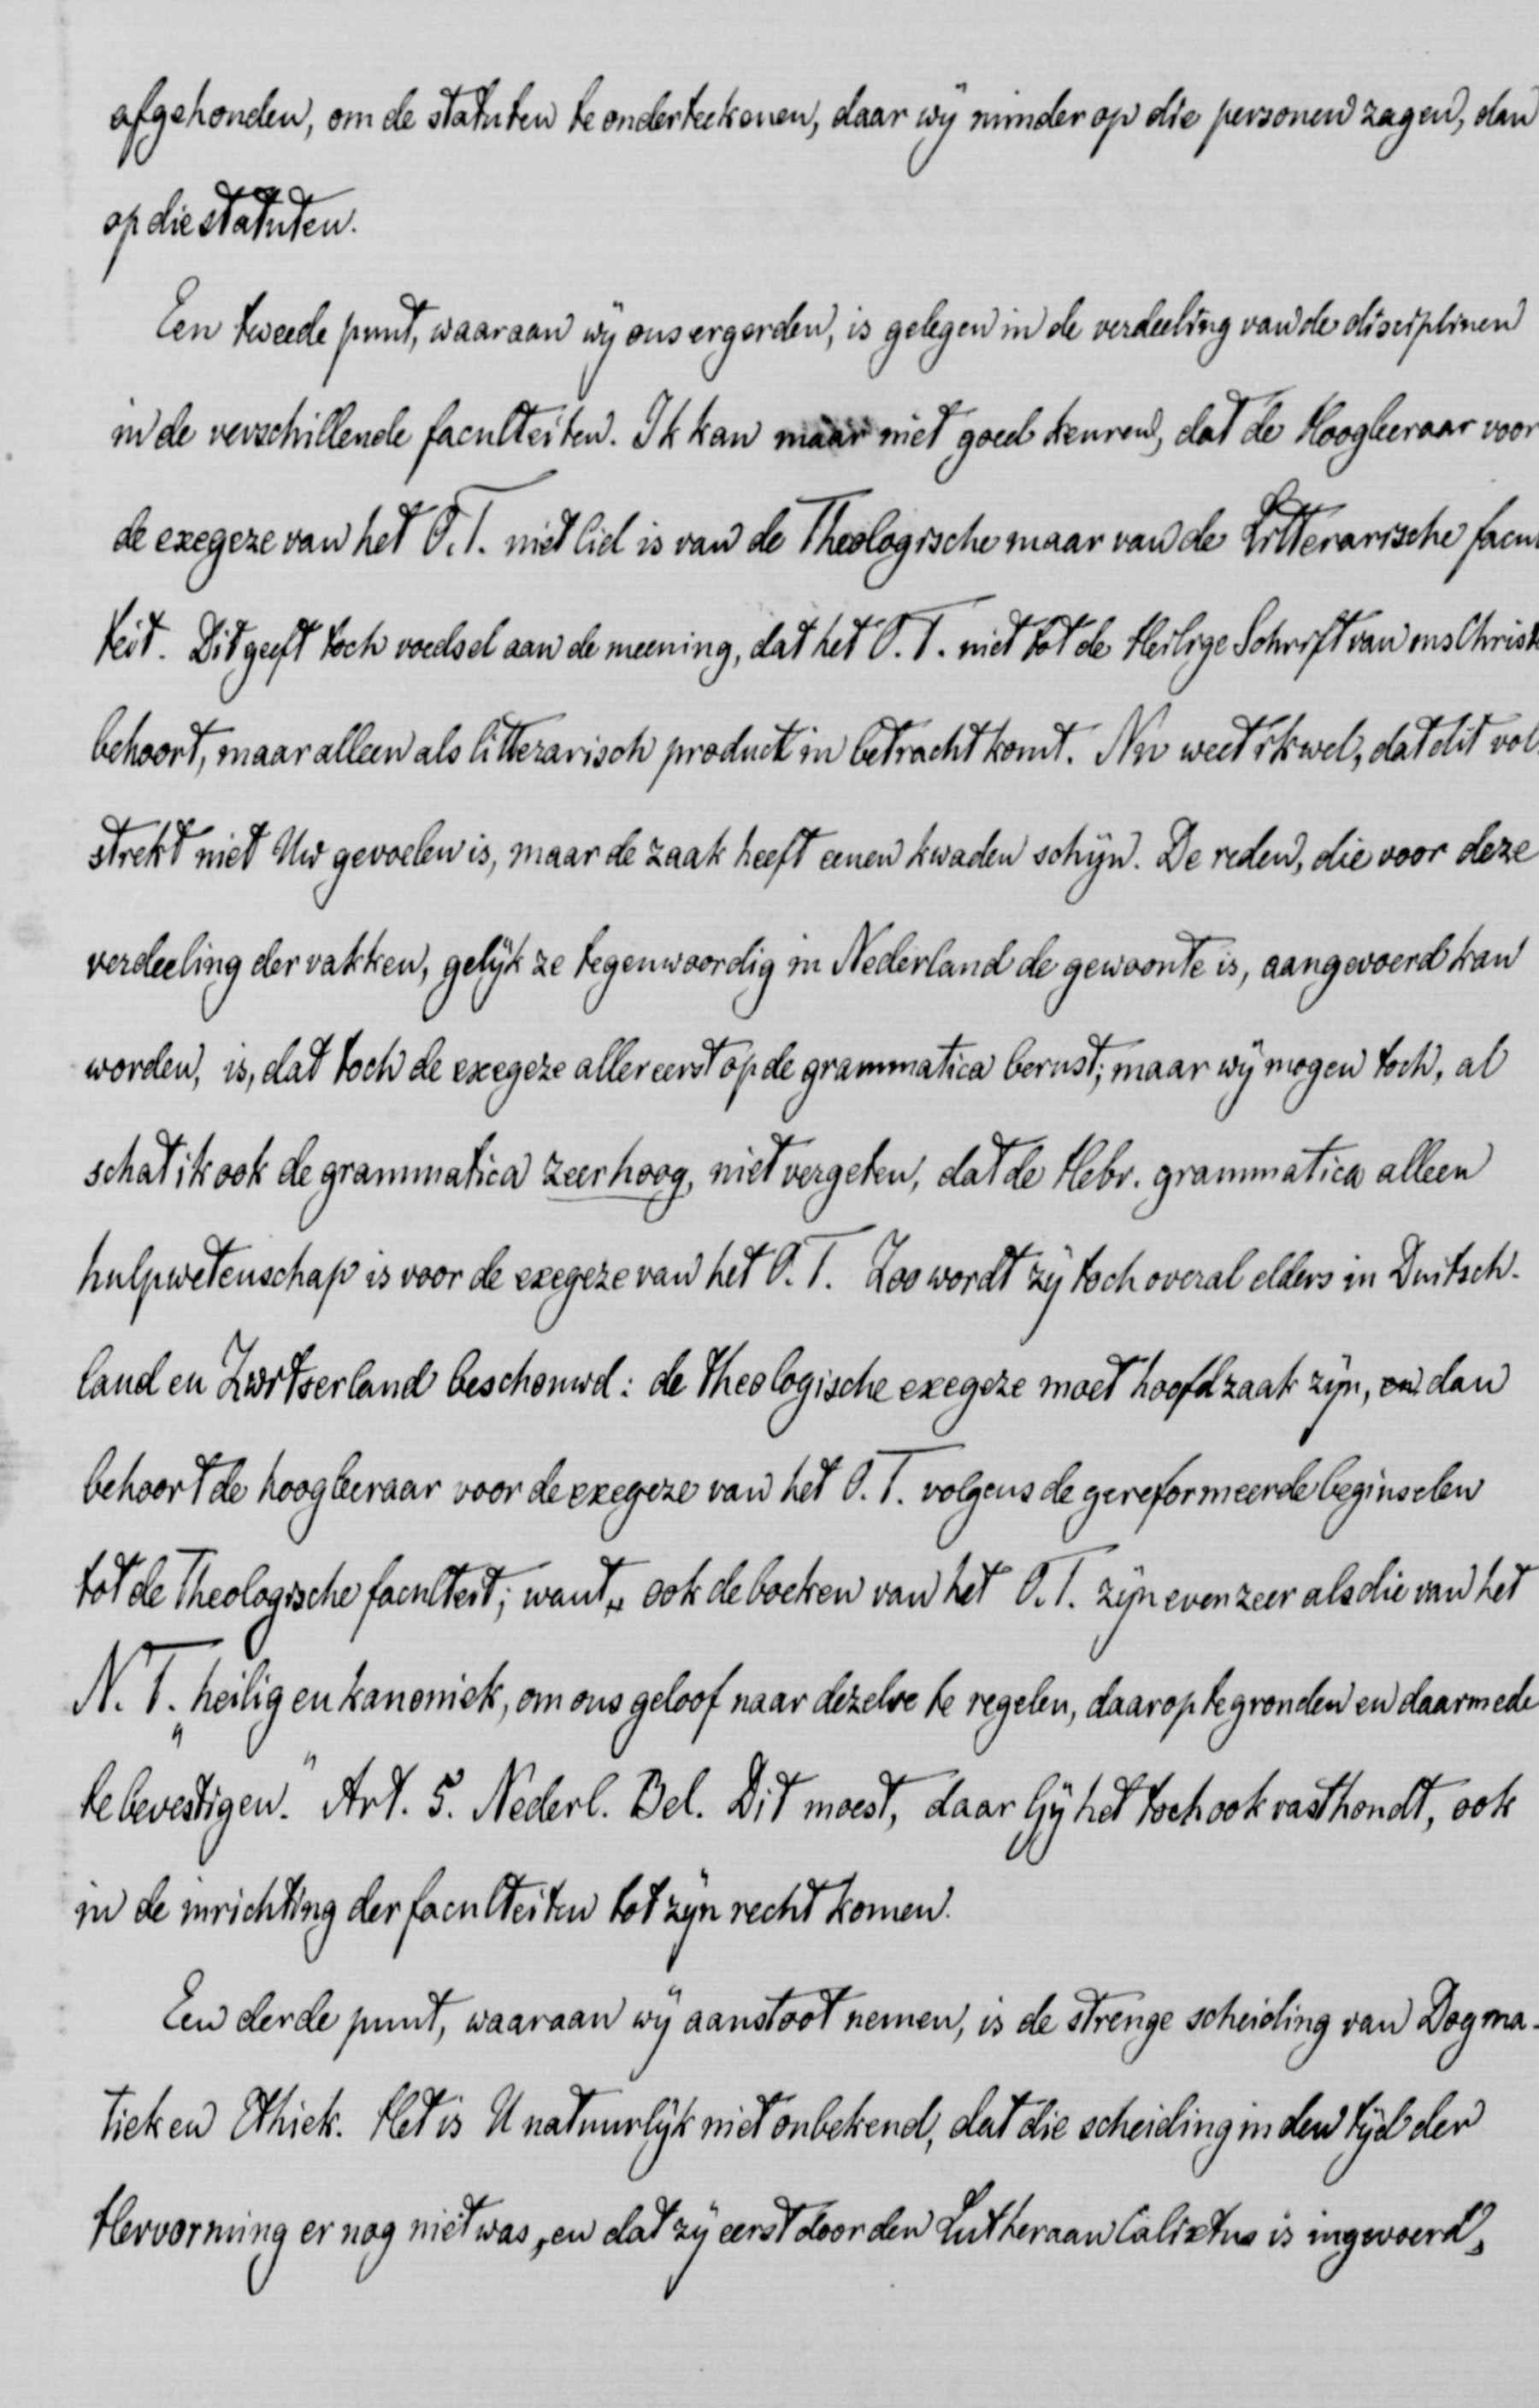 afgehouden, om de statuten te onderteekenen, daar wij minder op die personen zagen, dan
op die statuten.
Een tweede punt, waaraan wij ons ergerden, is gelegen in de verdeeling van de disciplinen
in de verschillende faculteiten. Ik kan maar niet goed keuren, dat de Hoogleeraar voor
de exegeze van het O.T. niet lid is van de Theologische maar van de Litterarische facul
teit. Dit geeft toch voedsel aan de meening, dat het O.T. niet tot de Heilige Schrift van ons Christe
behoort, maar alleen als litterarisch product in betracht komt. Nu weet ik wel, dat dit vol-
strekt niet Uw gevoelen is, maar de zaak heeft eenen kwaden schijn. De reden, die voor deze
verdeeling der vakken, gelijk ze tegenwoordig in Nederland de gewoonte is, aangevoerd kan
worden, is, dat toch de exegeze allereerst op de grammatica berust; maar wij mogen toch, al
schat ik ook de grammatica zeer hoog, niet vergeten, dat de Hebr. grammatica alleen
hulpwetenschap is voor de exegeze van het O.T. Zoo wordt zij toch overal elders in Duitsch-
land en Zwitserland beschouwd: de theologische exegeze moet hoofdzaak zijn, en dan
behoort de hoogleeraar voor de exegeze van het O.T. volgens de gereformeerde beginselen
tot de Theologische faculteit; want, ook de boeken van het O.T. zijn evenzeer als die van het
N.T. „heilig en kanoniek, om ons geloof naar dezelve te regelen, daarop te gronden en daarmede
te bevestigen." Art. 5. Nederl. Bel. Dit moest, daar Gij het toch ook vasthoudt, ook
in de inrichting der faculteiten tot zijn recht komen.
Een derde punt, waaraan wij aanstoot nemen, is de strenge scheiding van Dogma-
tiek en Ethiek. Het is U natuurlijk niet onbekend, dat die scheiding in den tijd der
Hervorming er nog niet was, en dat zij eerst door den Lutheraan Calixtus is ingevoerd,